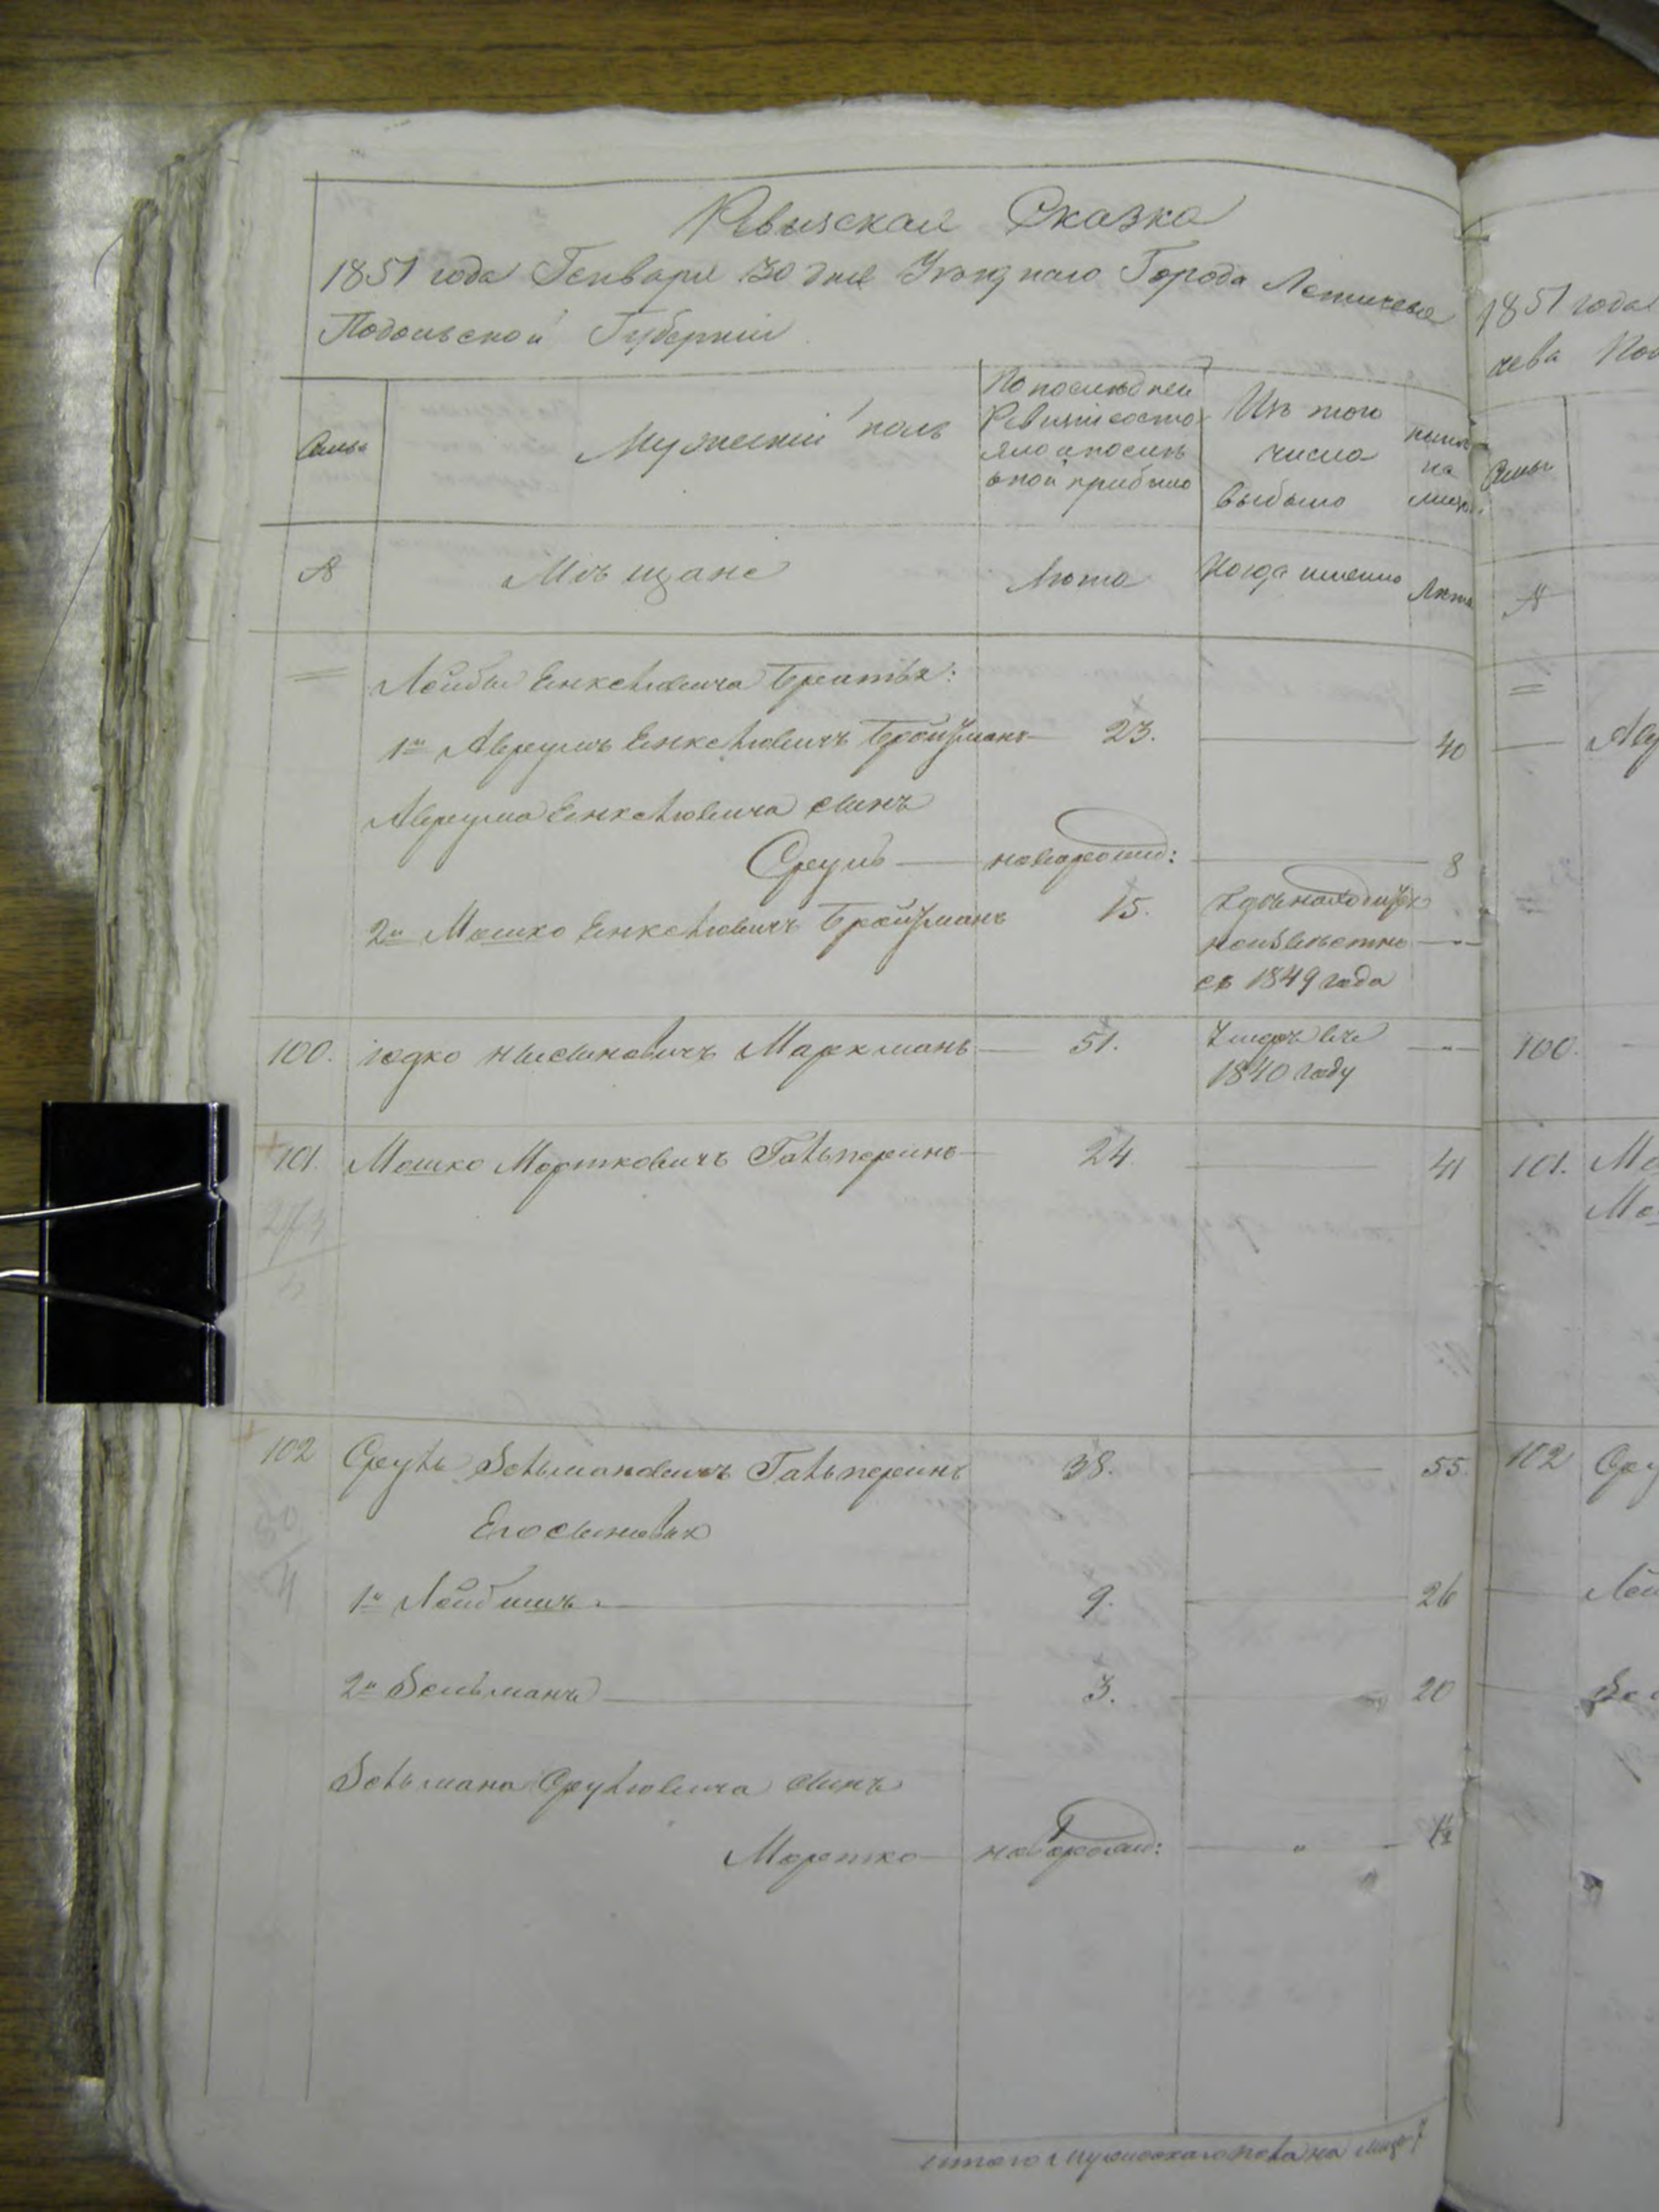 Ревизская Сказка
1851 года Генваря 30 дня Уезднаго Города Летичева
Подольской Губернии
Семьи
Мужеский полъ
По последней
Ревизии состо
яло и после
оной прибыло
Изъ того
числа
выбыло
ныне
на
лицо
№
Мещане
Лета
Когда именно
Лета
Лейбы Енкелювича братья:
1й Аврумъ Енкелювичъ Бройтманъ 23. 40
Аврума Енкелювича сынъ
Сруль новорожд: 8
2й Мошко Енкелювичъ Бройтманъ 15. где находится
неизвестно
съ 1849 года
100. Юдко Нысыновичъ Маркманъ 51. Умеръ въ
1840 году
101. Мошко Мортковичъ Гальперинъ 24 41
102 Сруль Зельмановичъ Гальперинъ 38. 55.
Его сыновья
1й Лейбишъ 9. 26
2й Зельманъ 3. 20
Зельмана Срулювича сынъ
Мортко новорожд: 1½
итого мужескаго пола на лицо 7
1851 года
чева Под
Семьи
№
100.
101. Мо
Мо
102 Сру
Лей
Зел